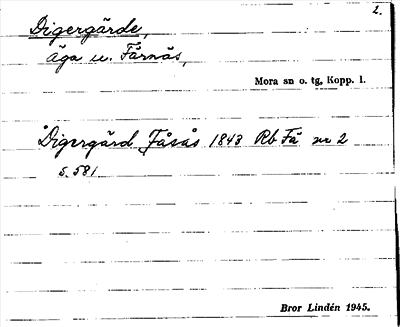 2.
Digergärde,
äga u. Färnäs,
Mora sn o. tg, Kopp. l.
Digergärd Fåsås 1843 Rb Fä nr 2
s. 581
Bror Lindén 1945.